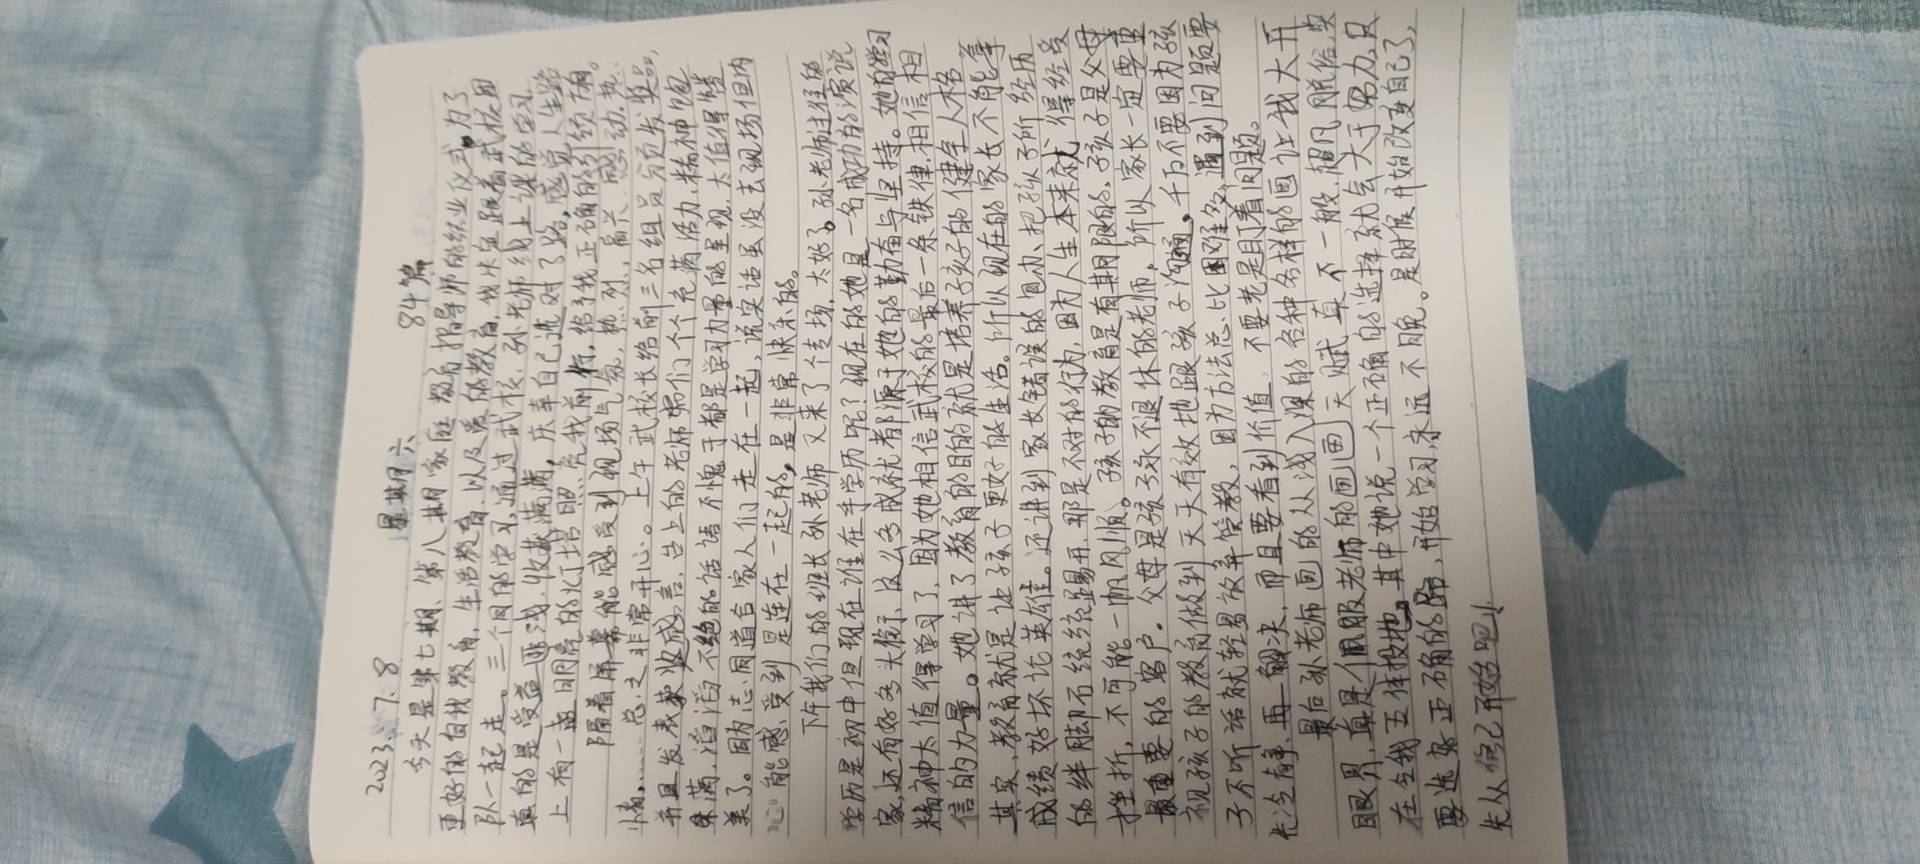 2023.7.8 星期六 84篇
今天是第七期、第八期家庭教育指导师的结业仪式,为了
更好的自我教育,生活教育,以及爱的教育,我决定跟着武校团
队一起走。三个月的学习,通过武校、孙老师线上课的学习
真的是受益匪浅,收获满满,庆幸自己选对了路,感觉人生路
上有一盏明亮的灯塔照亮我前行,给予我正确的引领
隔着屏幕能感受到现场气氛,热烈,高兴,感动,热
情……总之非常开心。上午武校长给前三名组员颁发奖品,
并且发表获奖感言,台上的老师
满满,滔滔不绝的话语不愧于都是学习力量的呈现,太值得赞
美了。因为志同道合家人们走在一起,说实话虽没去现场但内
心能感受到是连在一起的,是非常快乐的。
下午我们的班长孙老师又来了个传场,太好了。孙老师过往的
学历是初中但现在谁在乎学历呢?现在的她是一名成功的演说
家,还有好多头衔,这么多成就都源于她的勤奋与坚持。她的学习
精神太值得学习了,因为她相信武校的最后一条铁律,相信相
信的力量。她讲了教育的目的就是培养孩子的健全人格
其实,教育就是让孩子更好的生活。所以现在的家长不能拿
成绩好坏论英雄。还讲到家长错误的包办、把孩子所经历
的绊脚石统统踢开,那是不对的行为,因为人生本来就得经受
挫折,不可能一帆风顺。孩子的教育是有期限的,孩子是父母
最重要的客户。父母是孩子永不退休的老师,所以家长一定要重
视孩子的教育做到天天有效地跟孩子沟通。千万不要因为孩
子不听话就轻易放弃管教,因为方法总比困难多,遇到问题要
先冷静、再解决,而且要看到价值,不要老是盯着问题。
最后孙老师画的从浅入深的各种各样的画让我大开
眼界,真是佩服老师的画画天赋,真不一般,
在全我五体投地。其中她说一个正确的选择就会大于努力,只
要选好正确的路,开始学习,永远不晚。是时候开始改变自己了,
先从自己开始吧!